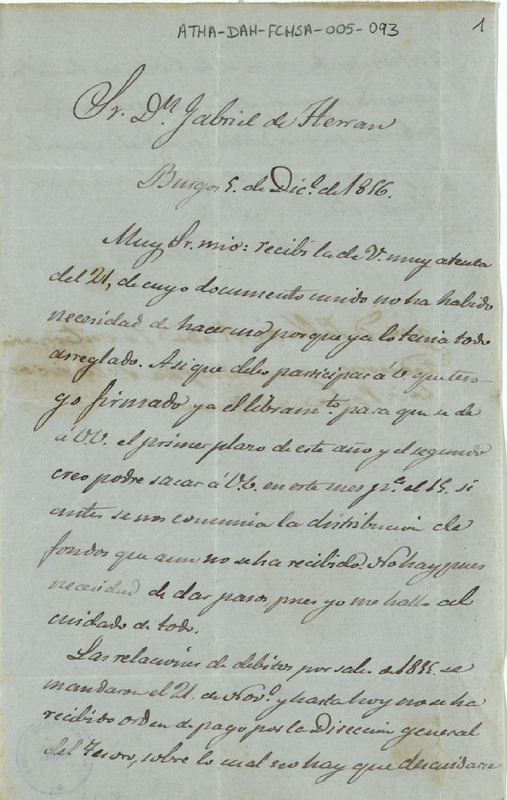 ATHA-DAH-FCHSA-005-093
1
Sr. Dn Gabriel de Herran
Burgos 5. de Dice. de 1856.
Muy Sr. mio: recibi la de V. muy atenta
del 21, de cuyo documento unido no ha habido
necesidad de hacer uso porque ya lo tenia todo
arreglado. Asi que debo participar á V. que ten-
go firmado ya el libramto. para que se de
á V.V. el primer plazo de este año y el segundo
creo podre sacar á V.V. en este mes pa. el 15. si
antes se nos comunica la distribucion de
fondos que aun no se ha recibido. No hay pues
necesidad de dar pasos pues yo me hallo al
cuidado de todo.
Las relaciones de debitos por sales de 1855 se
mandaron el 21. de Nove. y hasta hoy no se ha
recibido orden de pago por la Direccion general
del Tesoro, sobre lo cual no hay que descuidarse